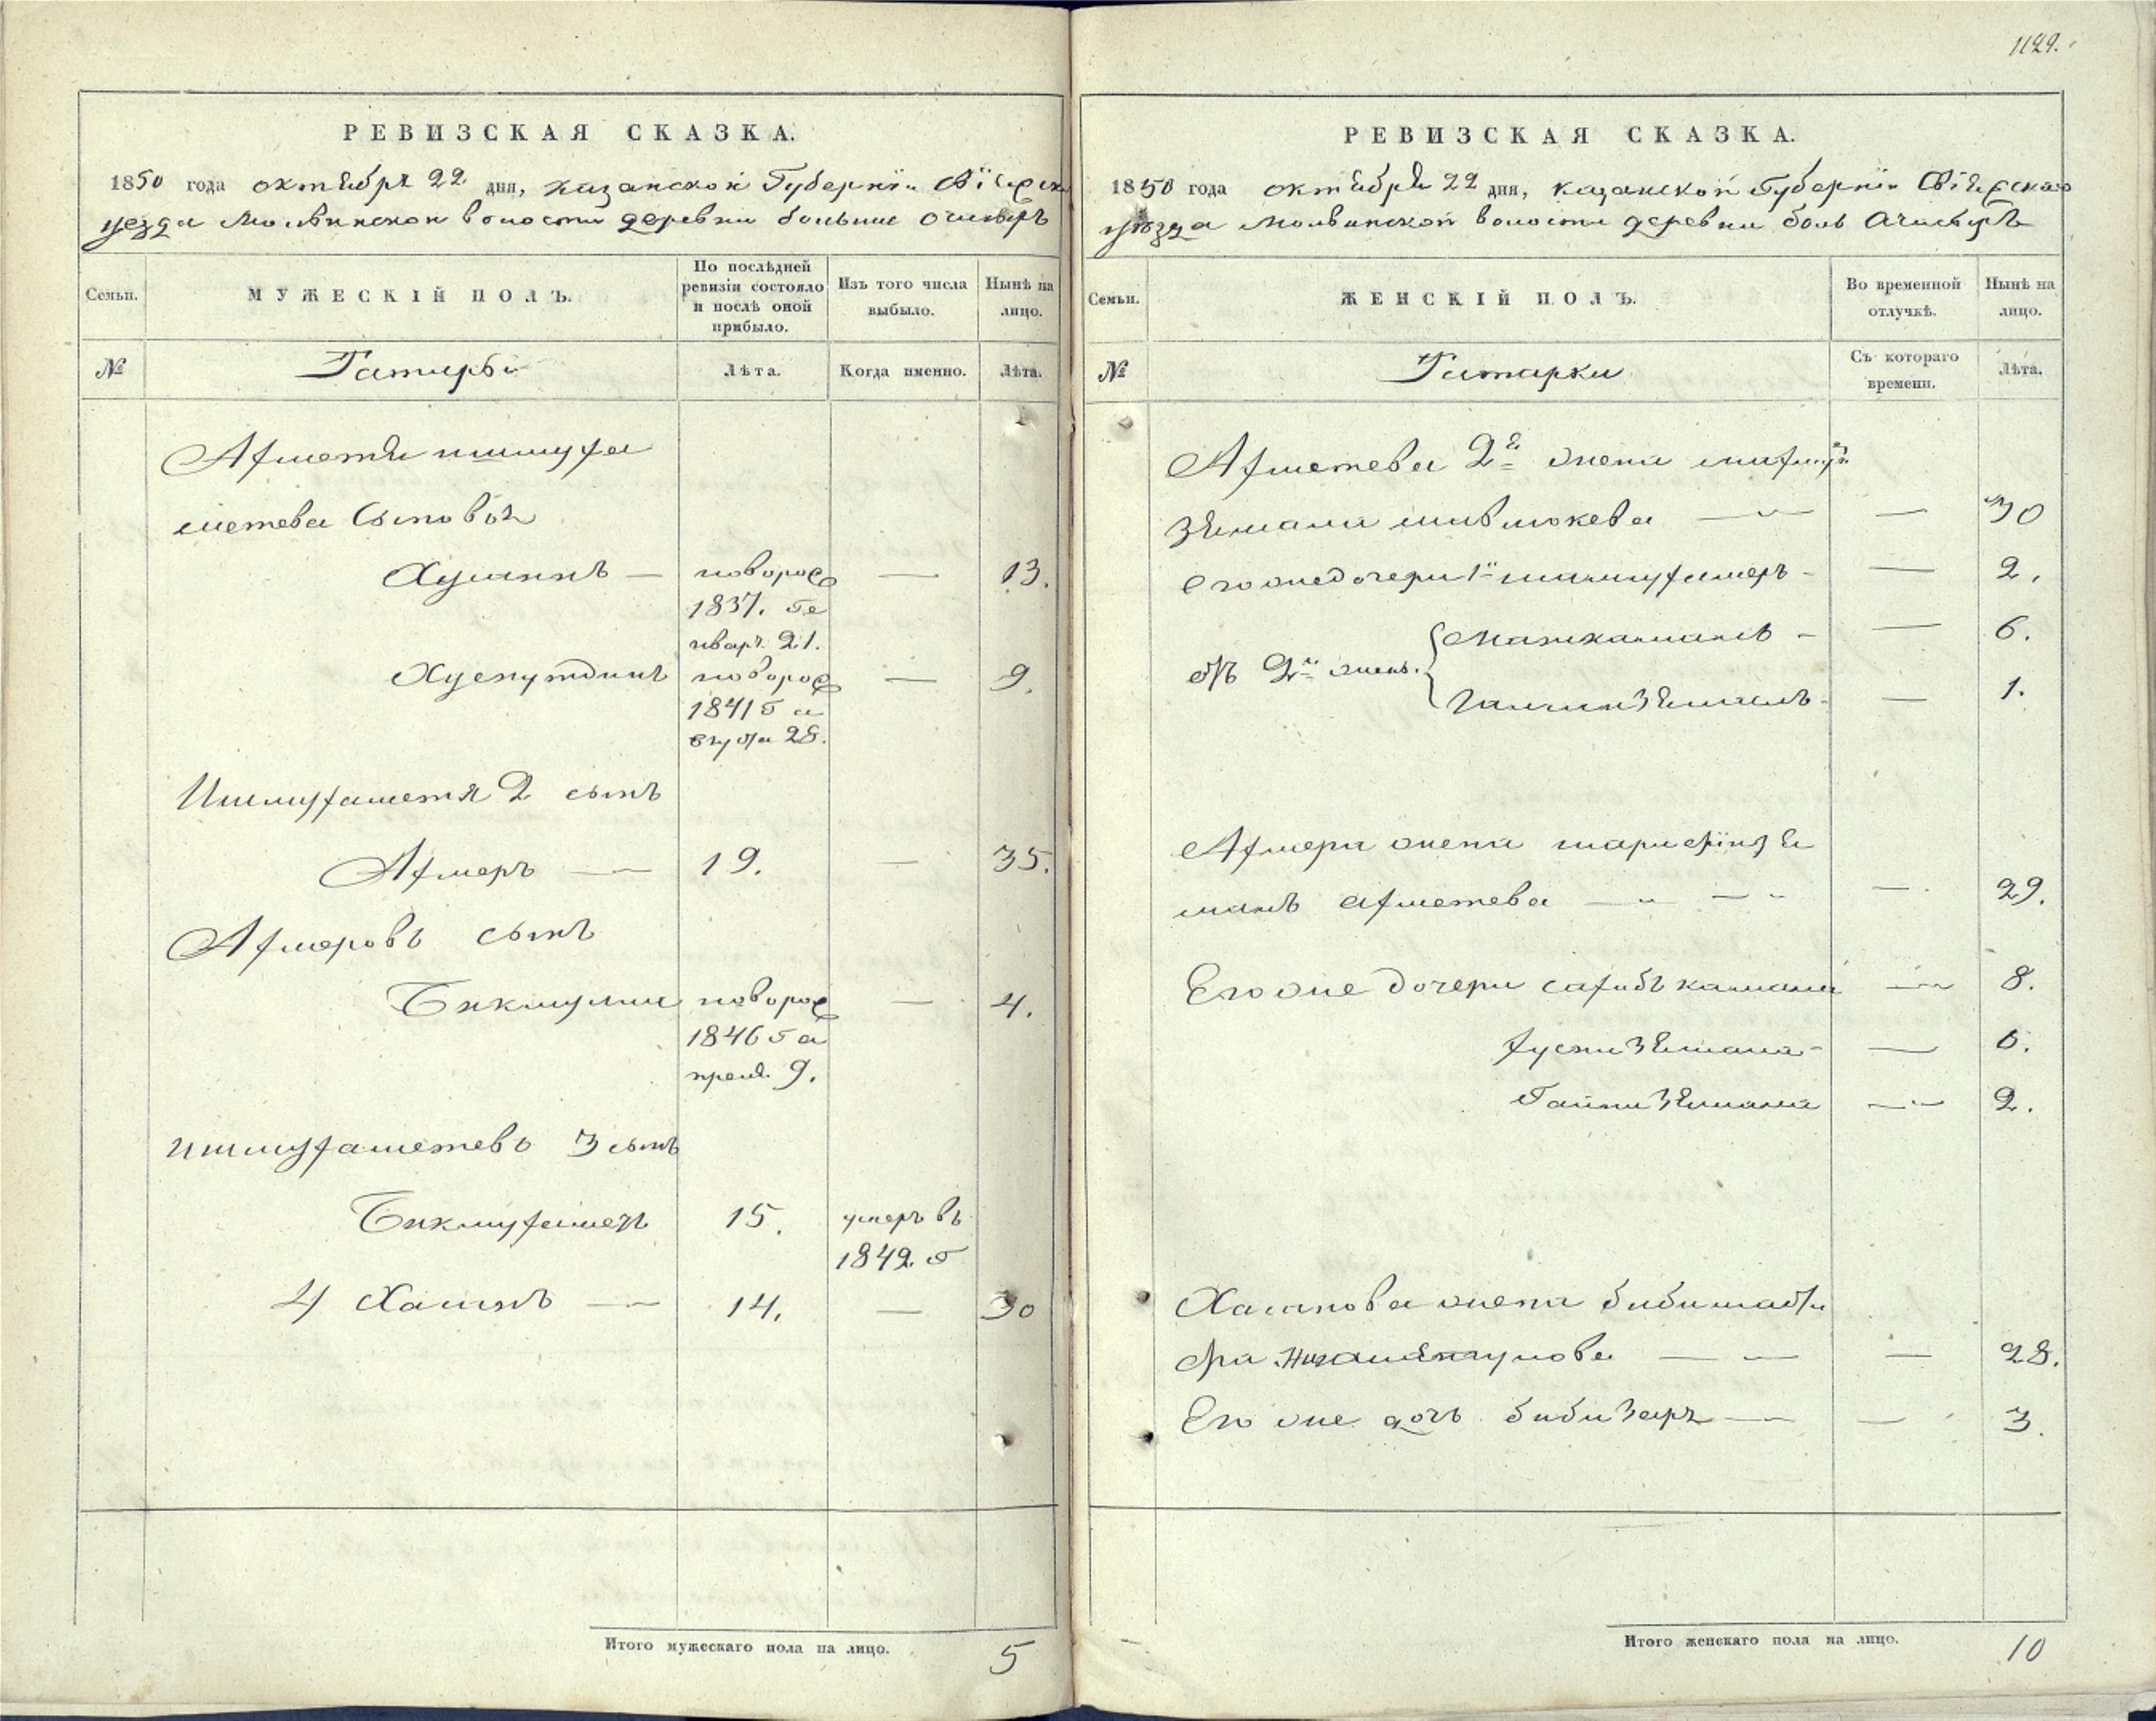 1129.
РЕВИЗСКАЯ СКАЗКА.
1850 года октября 22 дня, казанской Губернїи Свїяжск
уезда Мольвинской волости деревни больше Очисыръ
Семьи.
МУЖЕСКІЙ ПОЛЪ.
По послѣдней
ревизіи состояло
и послѣ оной
прибыло.
Изъ того числа
выбыло.
Нынѣ на
лицо.
№
Татары
Лѣта.
Когда именно.
Лѣта.
Ахметя ишмуха
метева Сыновья
Хузинъ — новорож — 13.
1837. Ге
нвар. 21.
Хуснутдинъ новорож — 9.
1841 г а
вгуста 28.
Ишмухаметя 2 сынъ
Ахмеръ — 19. — 35.
Ахмеровъ сынъ
Бикмулли новорож — 4.
1846 г а
преля 9.
ишмухаметевъ 3 сынъ
Бикмухамет 15. умеръ въ
1842 г
4 Хасянъ — 14. — 30
Итого мужескаго пола на лицо. 5
РЕВИЗСКАЯ СКАЗКА.
1850 года октября 22 дня, казанской Губернїи Свїяжскаго
уѣзда Мольвинской волости деревни боль Ачисыръ
Семьи.
ЖЕНСКІЙ ПОЛЪ.
Во временной
отлучкѣ.
Нынѣ на
лицо.
№
Татарки
Съ котораго
времени.
Лѣта.
Ахметева 2я жена
— — 30
его же дочери 1й — 2.
отъ 2й жены. — 6.
— 1.
Ахмера жена шарифїнзя
малъ ахметева — — 29.
Его же дочери сахибъ камала — 8.
хуснизямала — 6.
Гайнизямала — 2.
Хасянова жена бибишаты
фа — — 28.
Его же дочь бибизяр — — 3.
Итого женскаго пола на лицо. 10